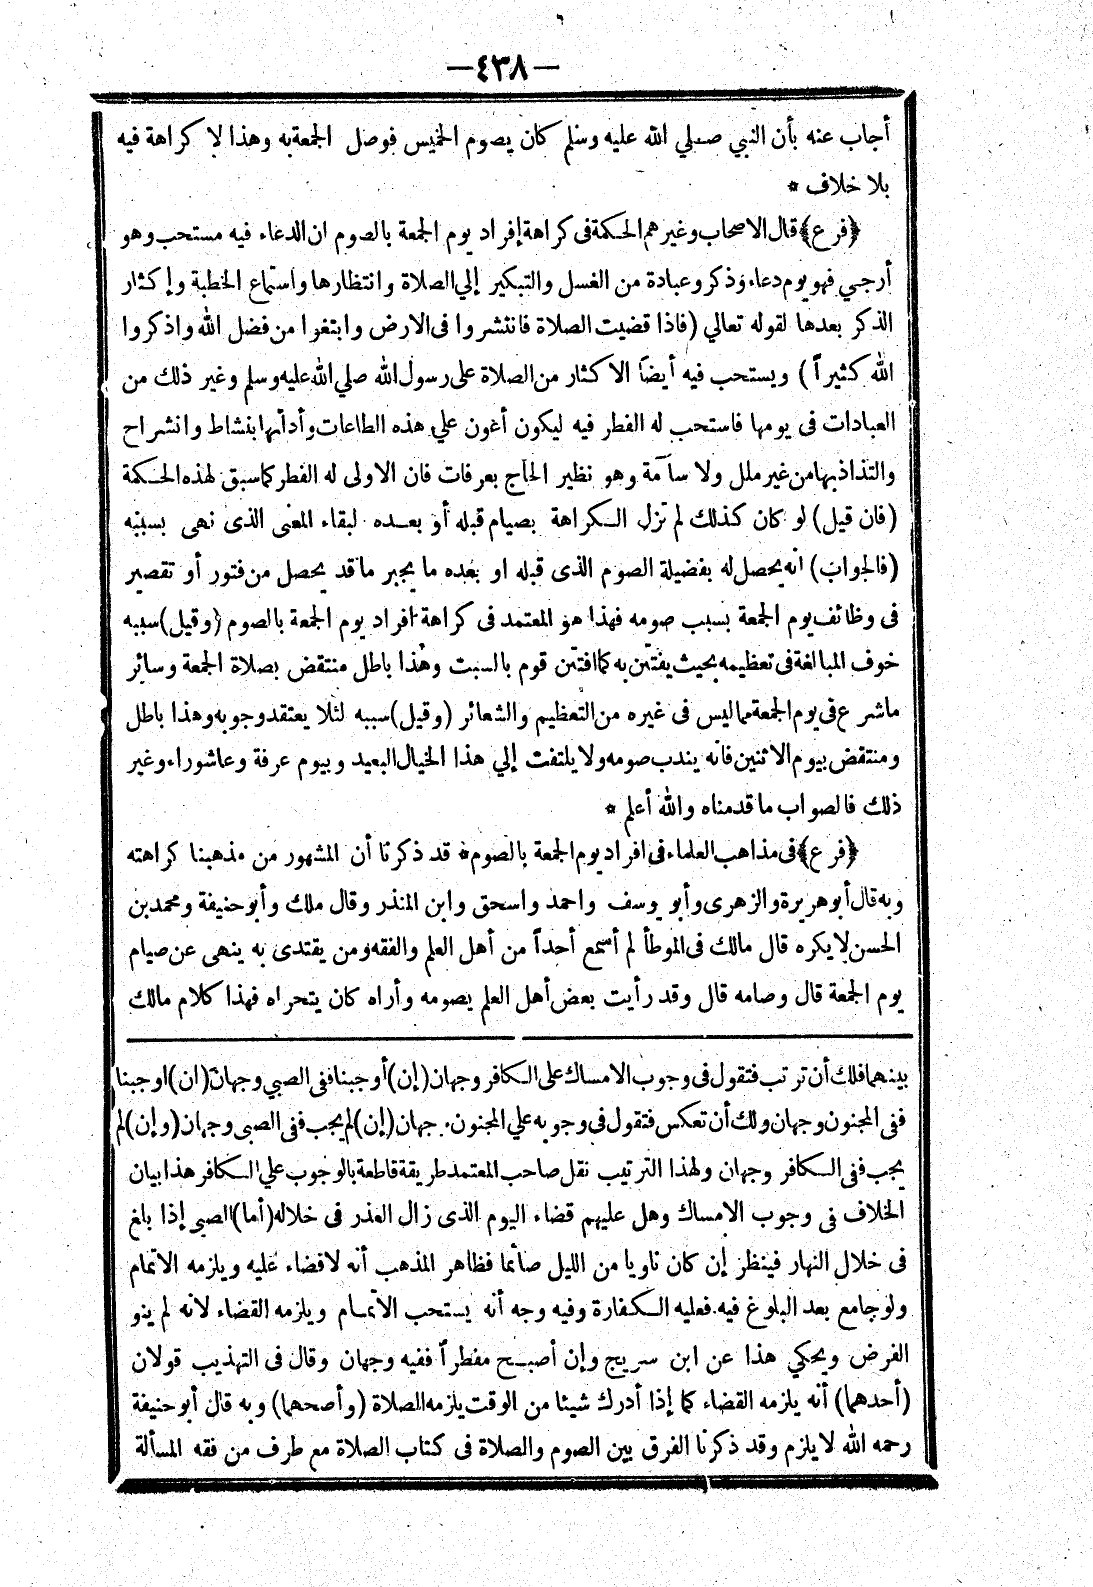 —٤٣٨—
أجاب عنه بأن النبي صلي الله عليه وسلم كان يصوم الخميس فوصل الجمعة به وهذا لا كراهة فيه
بلا خلاف *
﴿فرع﴾ قال الاصحاب وغيرهم الحكمة فى كراهة إفراد يوم الجمعة بالصوم ان الدعاء فيه مستحب وهو
أرجي فهو يوم دعاء وذكر وعبادة من الغسل والتبكير إلي الصلاة وانتظارها واستماع الخطبة وإكثار
الذكر بعدها لقوله تعالي (فاذا قضيت الصلاة فانتشروا فى الارض وابتغوا من فضل الله واذكروا
الله كثيراً) ويستحب فيه أيضاً الاكثار من الصلاة على رسول الله صلي الله عليه وسلم وغير ذلك من
العبادات فى يومها فاستحب له الفطر فيه ليكون أعون علي هذه الطاعات وأدائها بنشاط وانشراح
والتذاذ بها من غير ملل ولا سآمة وهو نظير الحاج بعرفات فان الاولى له الفطر كما سبق لهذه الحكمة
(فان قيل) لو كان كذلك لم تزل الكراهة بصيام قبله أو بعده لبقاء المعنى الذى نهى بسببه
(فالجواب) انه يحصل له بفضيلة الصوم الذى قبله او بعده ما يجبر ما قد يحصل من فتور أو تقصير
فى وظائف يوم الجمعة بسبب صومه فهذا هو المعتمد فى كراهة افراد يوم الجمعة بالصوم (وقيل) سببه
خوف المبالغة فى تعظيمه بحيث يفتتن به كما افتتن قوم بالسبت وهذا باطل منتقض بصلاة الجمعة وسائر
ماشرع فى يوم الجمعة مما ليس فى غيره من التعظيم والشعائر (وقيل) سببه لئلا يعتقد وجوبه وهذا باطل
ومنتقض بيوم الاثنين فانه يندب صومه ولا يلتفت إلي هذا الخيال البعيد وبيوم عرفة وعاشوراء وغير
ذلك فالصواب ما قدمناه والله أعلم *
﴿فرع﴾ فى مذاهب العلماء فى افراد يوم الجمعة بالصوم * قد ذكرنا أن المشهور من مذهبنا كراهته
وبه قال أبو هريرة والزهرى وأبو يوسف واحمد واسحق وابن المنذر وقال ملك وأبو حنيفة ومحمد بن
الحسن لا يكره قال مالك فى الموطأ لم أسمع أحداً من أهل العلم والفقه ومن يقتدى به ينهى عن صيام
يوم الجمعة قال وصامه قال وقد رأيت بعض أهل العلم يصومه وأراه كان يتحراه فهذا كلام مالك
بينهما فلك أن ترتب فتقول فى وجوب الامساك على الكافر وجهان (إن) أوجبنا ففى الصبي وجهان (ان) اوجبنا
ففى المجنون وجهان ولك أن تعكس فتقول فى وجوبه علي المجنون وجهان (إن) لم يجب ففى الصبى وجهان (وإن) لم
يجب ففى الكافر وجهان ولهذا الترتيب نقل صاحب المعتمد طريقة قاطعة بالوجوب علي الكافر هذا بيان
الخلاف فى وجوب الامساك وهل عليهم قضاء اليوم الذى زال العذر فى خلاله (أما) الصبى إذا بلغ
فى خلال النهار فينظر إن كان ناويا من الليل صائما فظاهر المذهب أنه لا قضاء عليه ويلزمه الاتمام
ولو جامع بعد البلوغ فيه فعليه الكفارة وفيه وجه أنه يستحب الاتمام ويلزمه القضاء لانه لم ينو
الفرض ويحكي هذا عن ابن سريج وإن أصبح مفطراً ففيه وجهان وقال فى التهذيب قولان
(أحدهما) أنه يلزمه القضاء كما إذا أدرك شيئا من الوقت يلزمه الصلاة (وأصحهما) وبه قال أبو حنيفة
رحمه الله لا يلزم وقد ذكرنا الفرق بين الصوم والصلاة فى كتاب الصلاة مع طرف من فقه المسألة